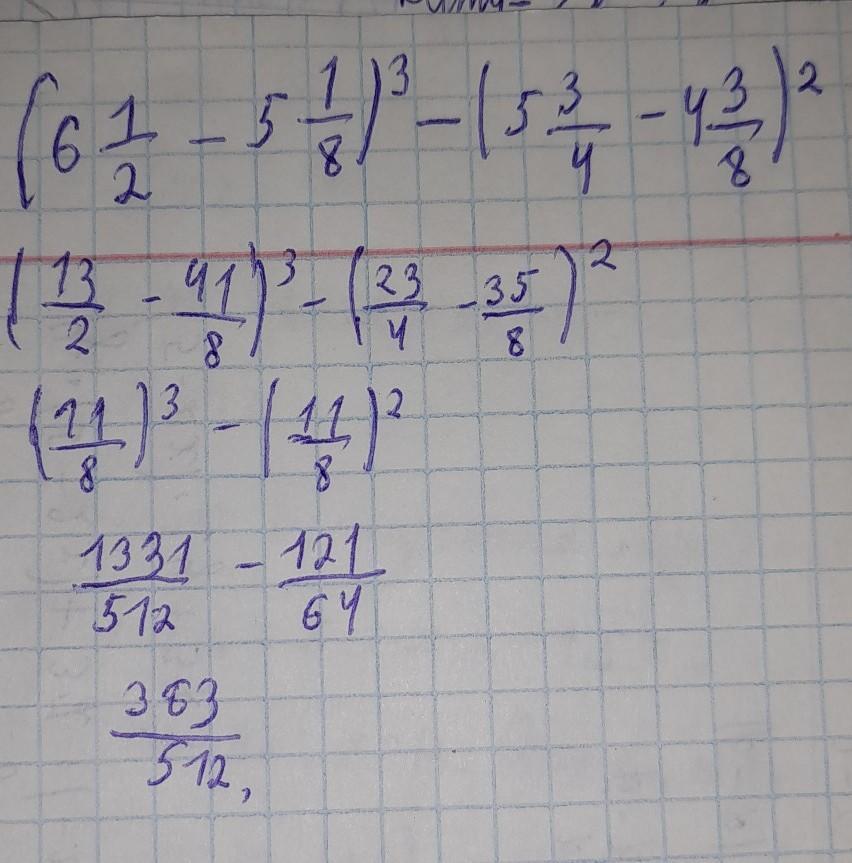 (6 1/2 - 5 1/8)^3 - (5 3/4 - 4 3/8)^2
(13/2 - 41/8)^3 - (23/4 - 35/8)^2
(11/8)^3 - (11/8)^2
1331/512 - 121/64
363/512,